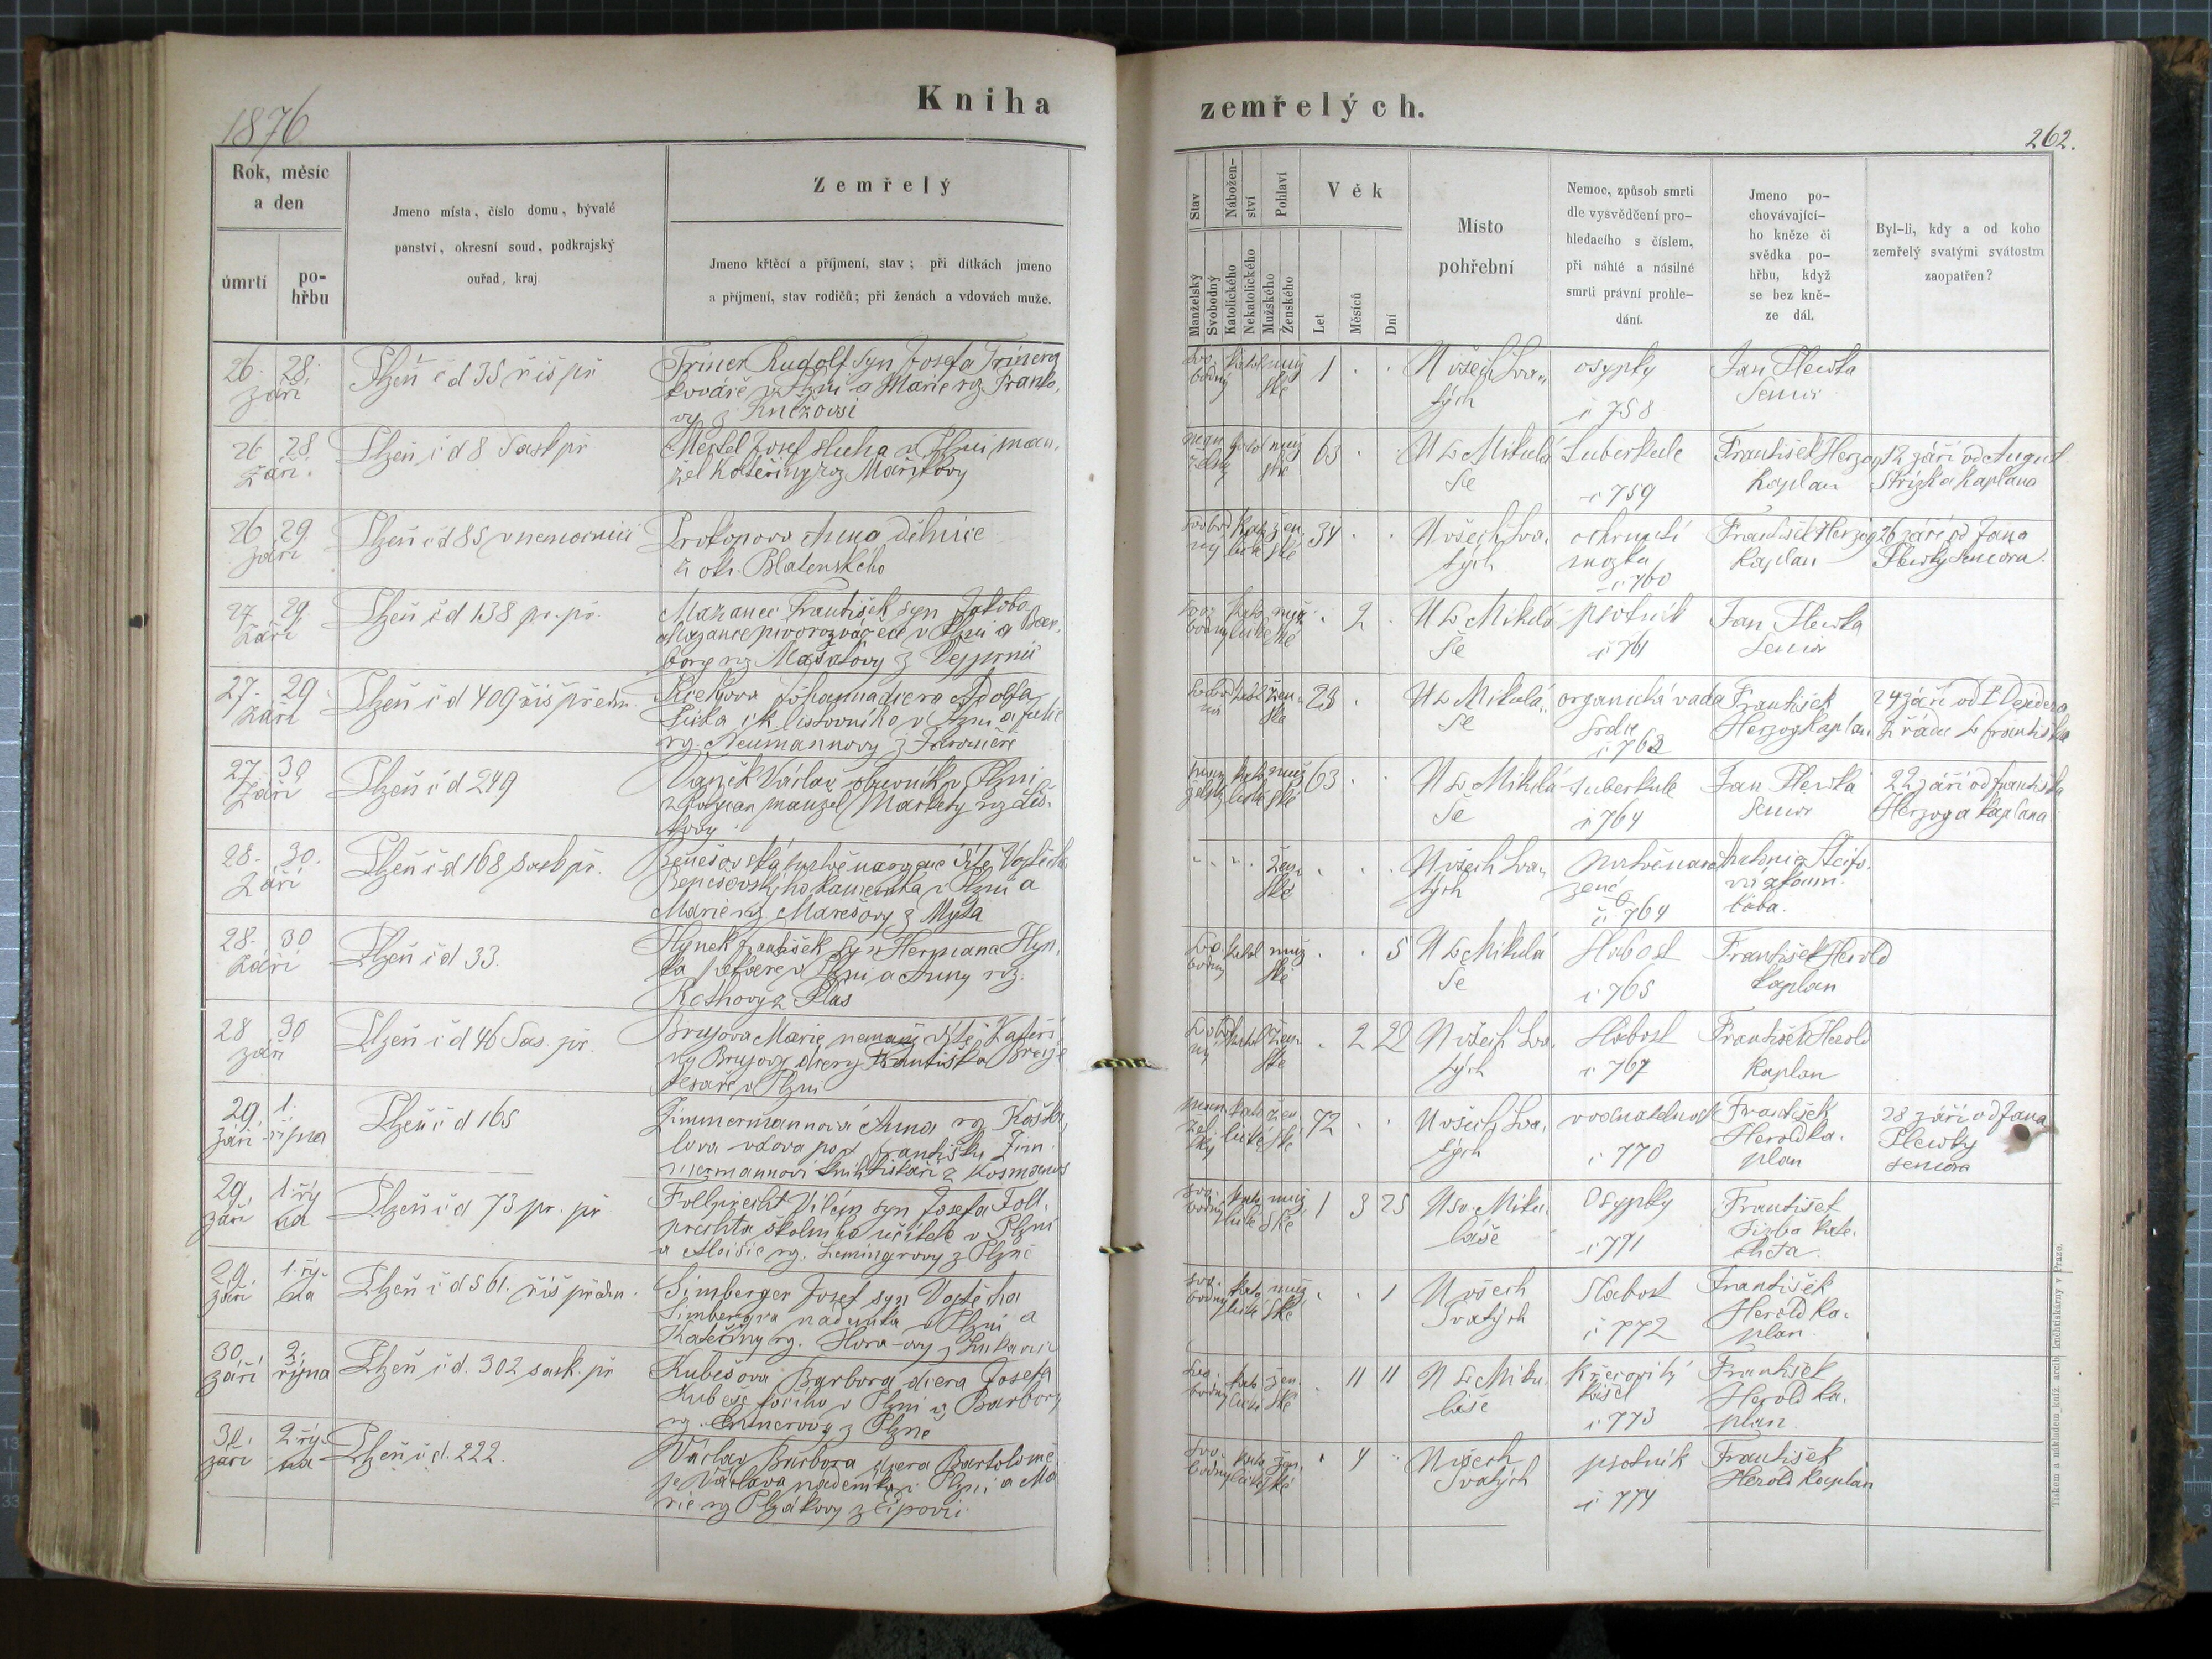 1876
Kniha
zemřelých.
262.
Rok, měsíc
a den
úmrtí
po-
hřbu
Jmeno místa, číslo domu, bývalé
panství, okresní soud, podkrajský
ouřad, kraj.
Zemřelý
Jmeno křtěcí a příjmení, stav; při dítkách jmeno
a příjmení, stav rodičů; při ženách a vdovách muže.
Stav
Manželský
Svobodný
Nábožen-
ství
Katolického
Nekatolického
Pohlaví
Mužského
Ženského
Věk
Let
Měsíců
Dní
Místo
pohřební
Nemoc, způsob smrti
dle vysvědčení pro-
hledacího s číslem,
při náhlé a násilné
smrti právní prohle-
dání.
Jmeno po-
chovávající-
ho kněze či
svědka po-
hřbu, když
se bez kně-
ze dál.
Byl-li, kdy a od koho
zemřelý svatými svátostmi
zaopatřen?
26. 28.
září
Plzeň č d 35 říš př
Triner Rudolf syn Josefa Trinera
kováře v Plzni a Marie rz Frank,
vy z Kněžovsi
1
U všech Sva,,
tých
osypky
č 758
Jan Plewka
Senior
26 28
září.
Plzeň č d 8 Sask př
Josef sluha v Plzni man,
žel Kateřiny roz Maříkovy
63
U Sv Mikulá
še
Tuberkule
č 759
František Herzog
Kaplan
12 září od August
Střízka Kaplana
26 29
září
Plzeň č d 85 v nemocnici
Prokopova Anna dělnice
z okr. Blatenského
34
U všech Sva,
tých
ochrnutí
mozku
č 760
František Herzog
Kaplan
26 září od Jana
Plewky Seniora.
27 29.
Září
Plzeň č d 138 pr. př.
Mazanec František syn Jakoba
Mazance pivorozvážeče v Plzni a Bar,
bory rz Mašatovy z Vejprnic
2
U Sv Mikulá
še
psotník
č 761
Jan Plewka
Senior
27. 29
Září
Plzeň č d 409 říš předm.
Johanna dcera Adolfa
c k listovního v Plzni a Julie
rz. Neumannovy z
28
U Sv Mikulá,,
še
organická vada
srdce
č 763
František
Herzog Kaplan
24 září od P Desidera
z řádu S Františka
27 30
Září
Plzeň č d 249
Vaněk Václav obuvník v Plzni
manžel Markety rz
63
U Sv Mikulá
še
tuberkule
č 764
Jan Plewka
Senior
22 září od Františka
Herzoga Kaplana
28. 30.
Září
Plzeň č d 168 Sask př.
Benešovská mrtvě narozené dítě Vojtěcha
Benešovského kameníka v Plzni a
Marie rz Marešovy z Mýta
žen,
ské
U všech Sva,,
tých
mrtvě naro
zené
č 764
Antonia
bába.
28. 30
Září
Plzeň č d 33.
Hynek František syn Hermana Hyn,
ka pekaře v Plzni a Anny roz.
Rothovy z Plas
5
U Sv Mikulá
še
Slabost
č 765
František Herold
Kaplan
28 30
září
Plzeň č d 46 Sas. př.
Brujova Marie nemanž dítě Kateři
ny Brujovy dcery Františka Breje
tesaře v Plzni
2 22
U všech Sva,
tých
Slabost
č 767
František Herold
Kaplan
29 1.
září října
Plzeň č d 165
Zimmermannová Anna rz. Koštá,
lova vdova po † Františku Zim,
mermannovi knihtiskaři z Kosmonos
72
U všech Sva,
tých
vodnatelnost
č 770
František
Herold ka,
plan
28 září od Jana
Plewky
seniora
29. 1. ří
září na
Plzeň č d 73 pr. př
Follprecht Vilém syn Josefa Foll,
prechta školního učitele v Plzni
a Aloisie rz. Lemingrovy z Plzně
1 3 25
U Sv. Miku,
láše
Osypky
č 771
František
kate,
cheta.
29 1. ří-
září na
Plzeň č d 561. říš předm.
Simberger Josef syn Vojtěcha
Simbergra nadenika v Plzni a
Kateřiny rz. Hora-ovy z Lukavic
1
U všech
Svatých
Slabost
č 772
František
Herold ka,
plan.
30. 2.
září října
Plzeň č d. 302 sask. př
Kubešova Barbora dcera Josefa
Kubeše v Plzni a Barbory
rz. z Plzně
11 11
U Sv Miku
láše
Křečovitý
kašel
č 773
František
Herold ka,
plan.
30. 2. ří-
září na
Plzeň č d. 222.
Václav Barbora dcera Bartoloměje
Václava nadenika v Plzni a Ma
rie rz Plzákovy z Lipovic
4
U všech
Svatých
psotník
č 774
František
Herold Kaplan
Tiskem a nákladem kníž. arcib. knihtiskárny v Praze.